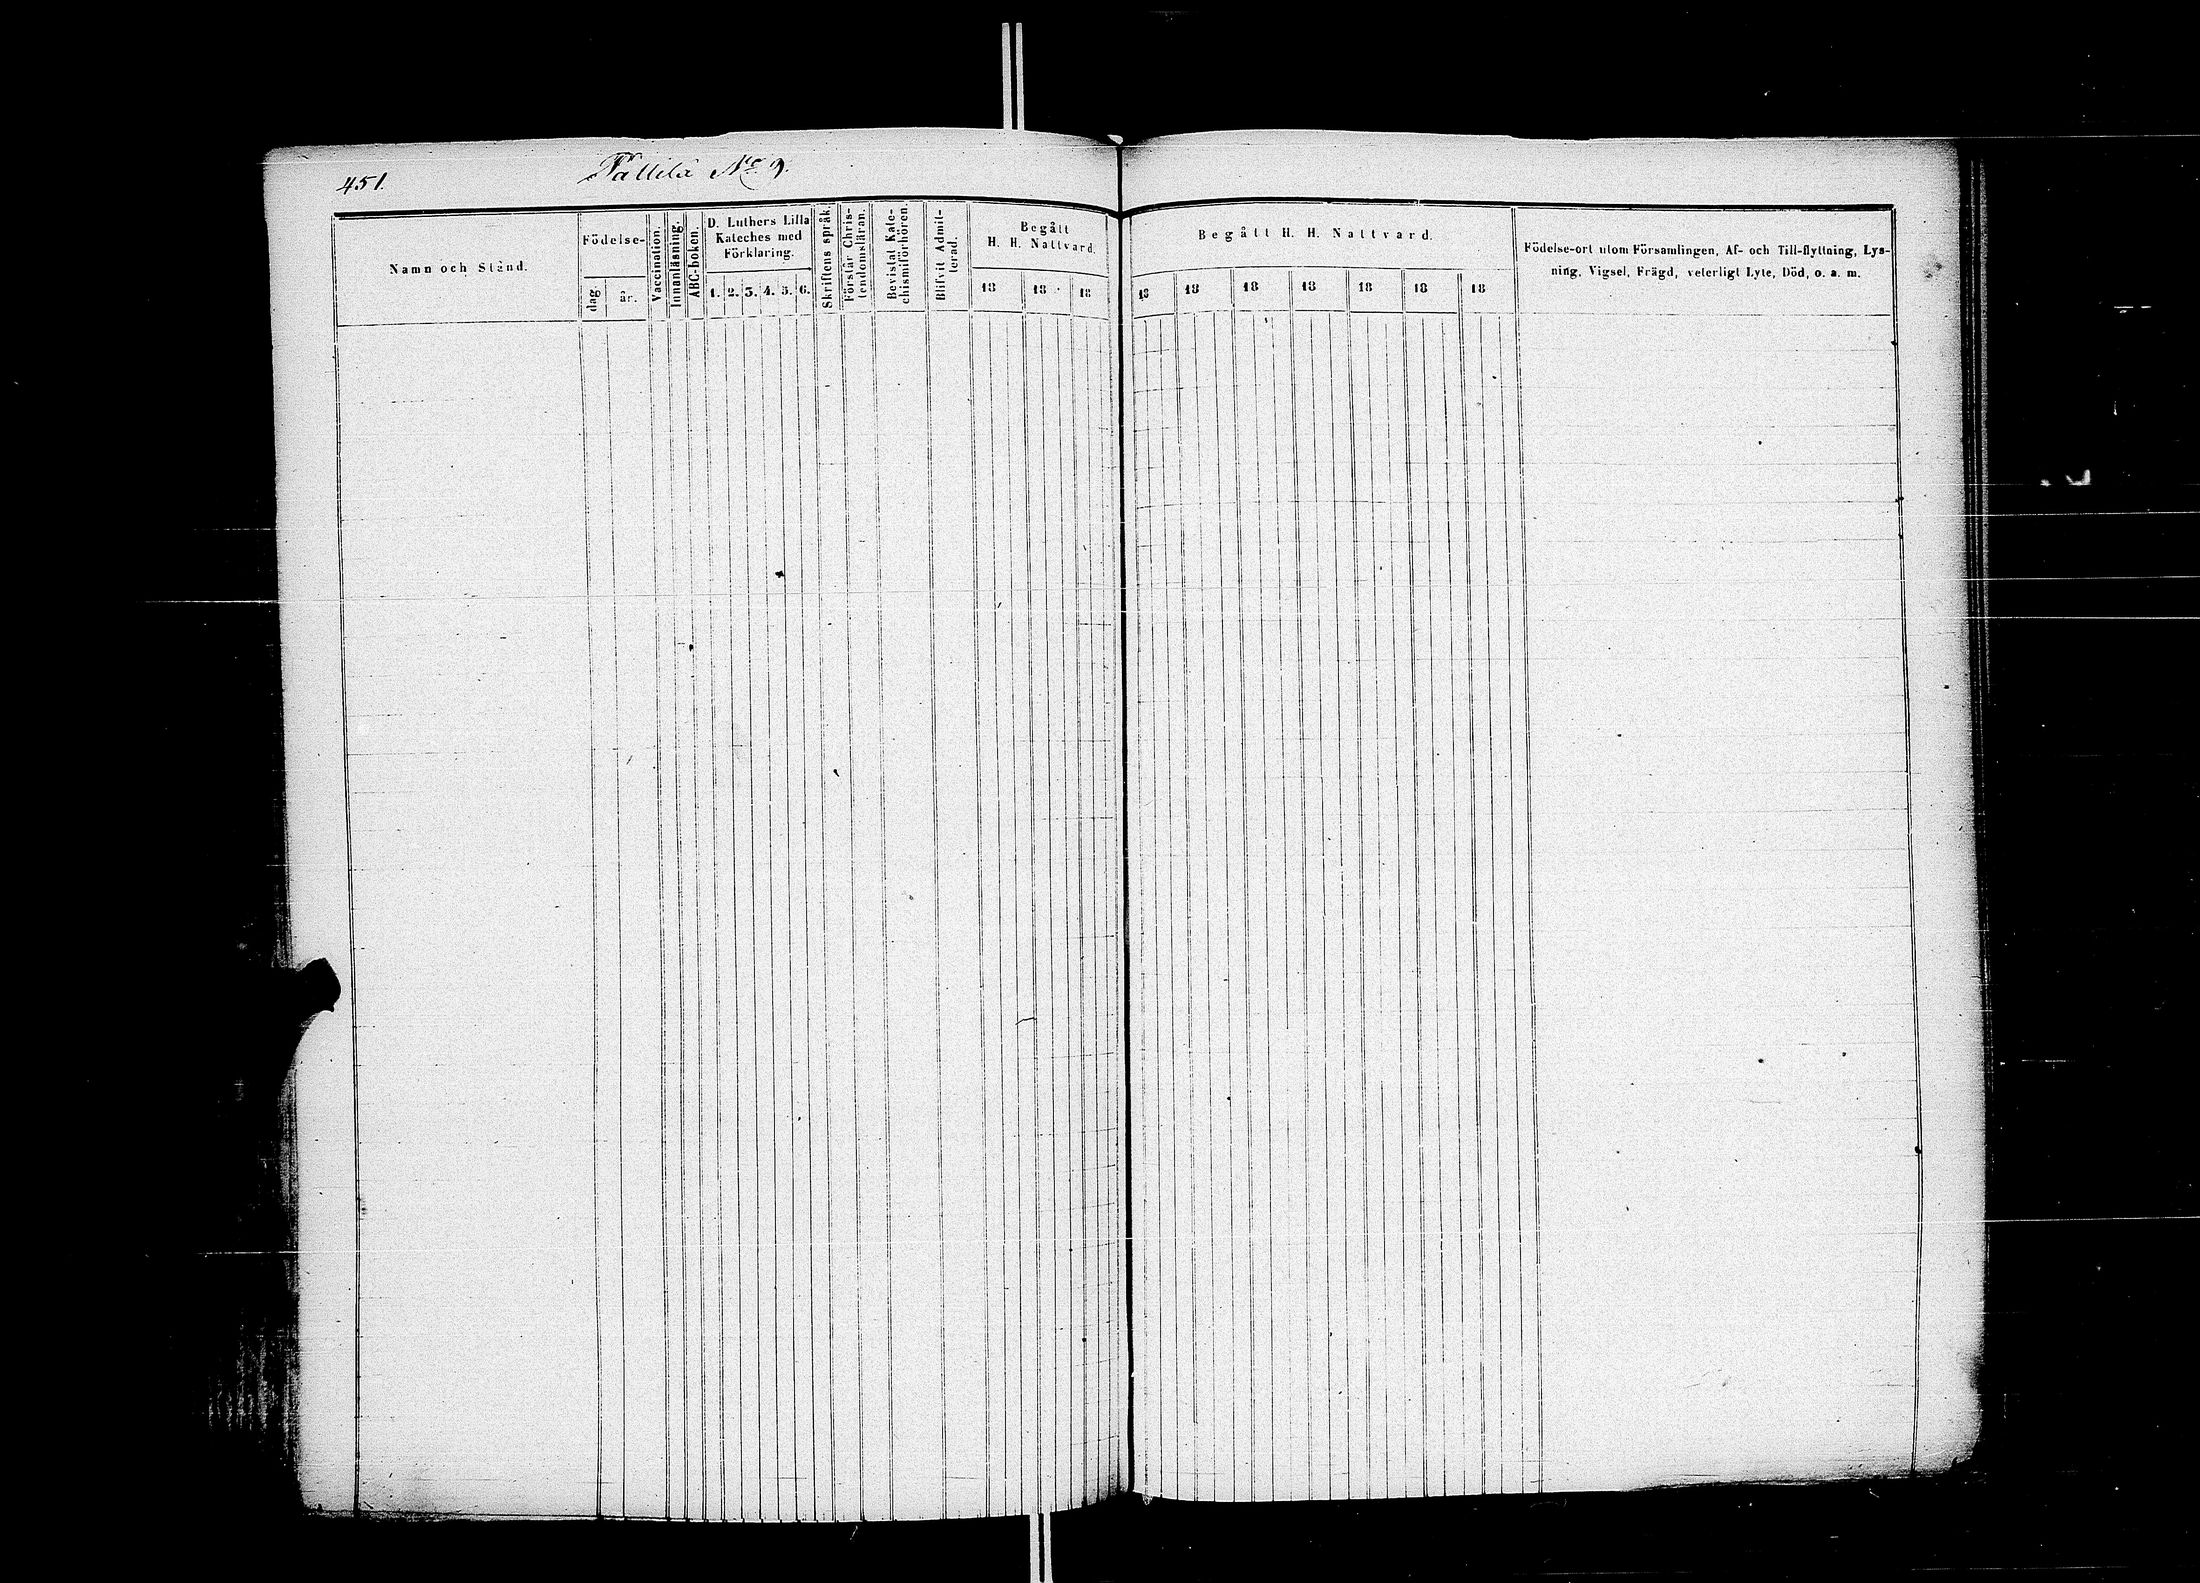 451.
Tattila No 9.
Namn och Stånd.
Födelse-
dag.
år.
Vaccination.
Innanläsning.
ABC-boken.
D. Luthers Lilla
Kateches med
Förklaring.
1. 2. 3. 4. 5. 6.
Skriftens språk.
Förstår Chris-
tendomsläran.
Bevistat Kate-
chismiförhören.
Blifvit Admit-
terad.
Begått
H. H. Nattvard.
18 18 18
Begått H. H. Nattvard.
18 18 18 18 18 18 18
Födelse-ort utom Församlingen, Af- och Till-flyttning, Lys-
ning, Vigsel, Frägd, veterligt Lyte, Död, o. a. m.